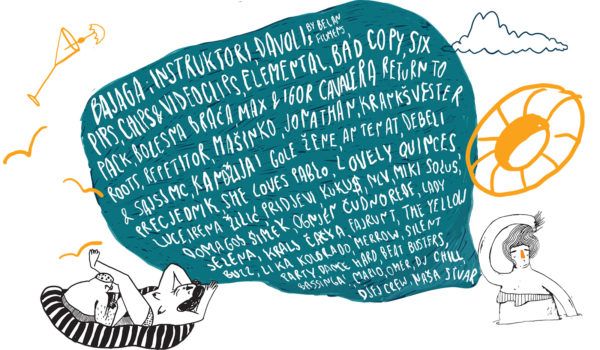 BAJAGA & INSTRUKTORI, DAVOLI BY BELAN
& FILMERS,
PIPS, CHIPS & VIDEOCLIPS, ELEMENTAL, BAD COPY, SIX
PACK, BOLESNA BRAĆA MAX & IGOR CAVALERA RETURN TO
ROOTS, REPETITOR, MAŠINKO, JONATHAN, KRANKŠVESTER
& SAJSI MC, KANDŽIJA I GOLE ŽENE, ARTEM AT, DEBELI
PRECJEDNIK, SHE LOVES PABLO, LOVELY QUINCES,
LUCE, IRENA ŽILIĆ, PRIDJEVI, KUKU$, NLV, MIKI SOLUS,
DOMAGOJ ŠIMEK, OGNJEN ČUDNOREDE, LADY
SELENA, KRALJ ČAČKA, FAJRUNT, THE YELLOW
BUZZ, LIKA KOLORADO, MERROW, SILENT
PARTY, DANCE HARD BEAT BUSTERS,
MARIO, OMER, DJ CHILL
DJEJ CREW, MAŠA, STUAR